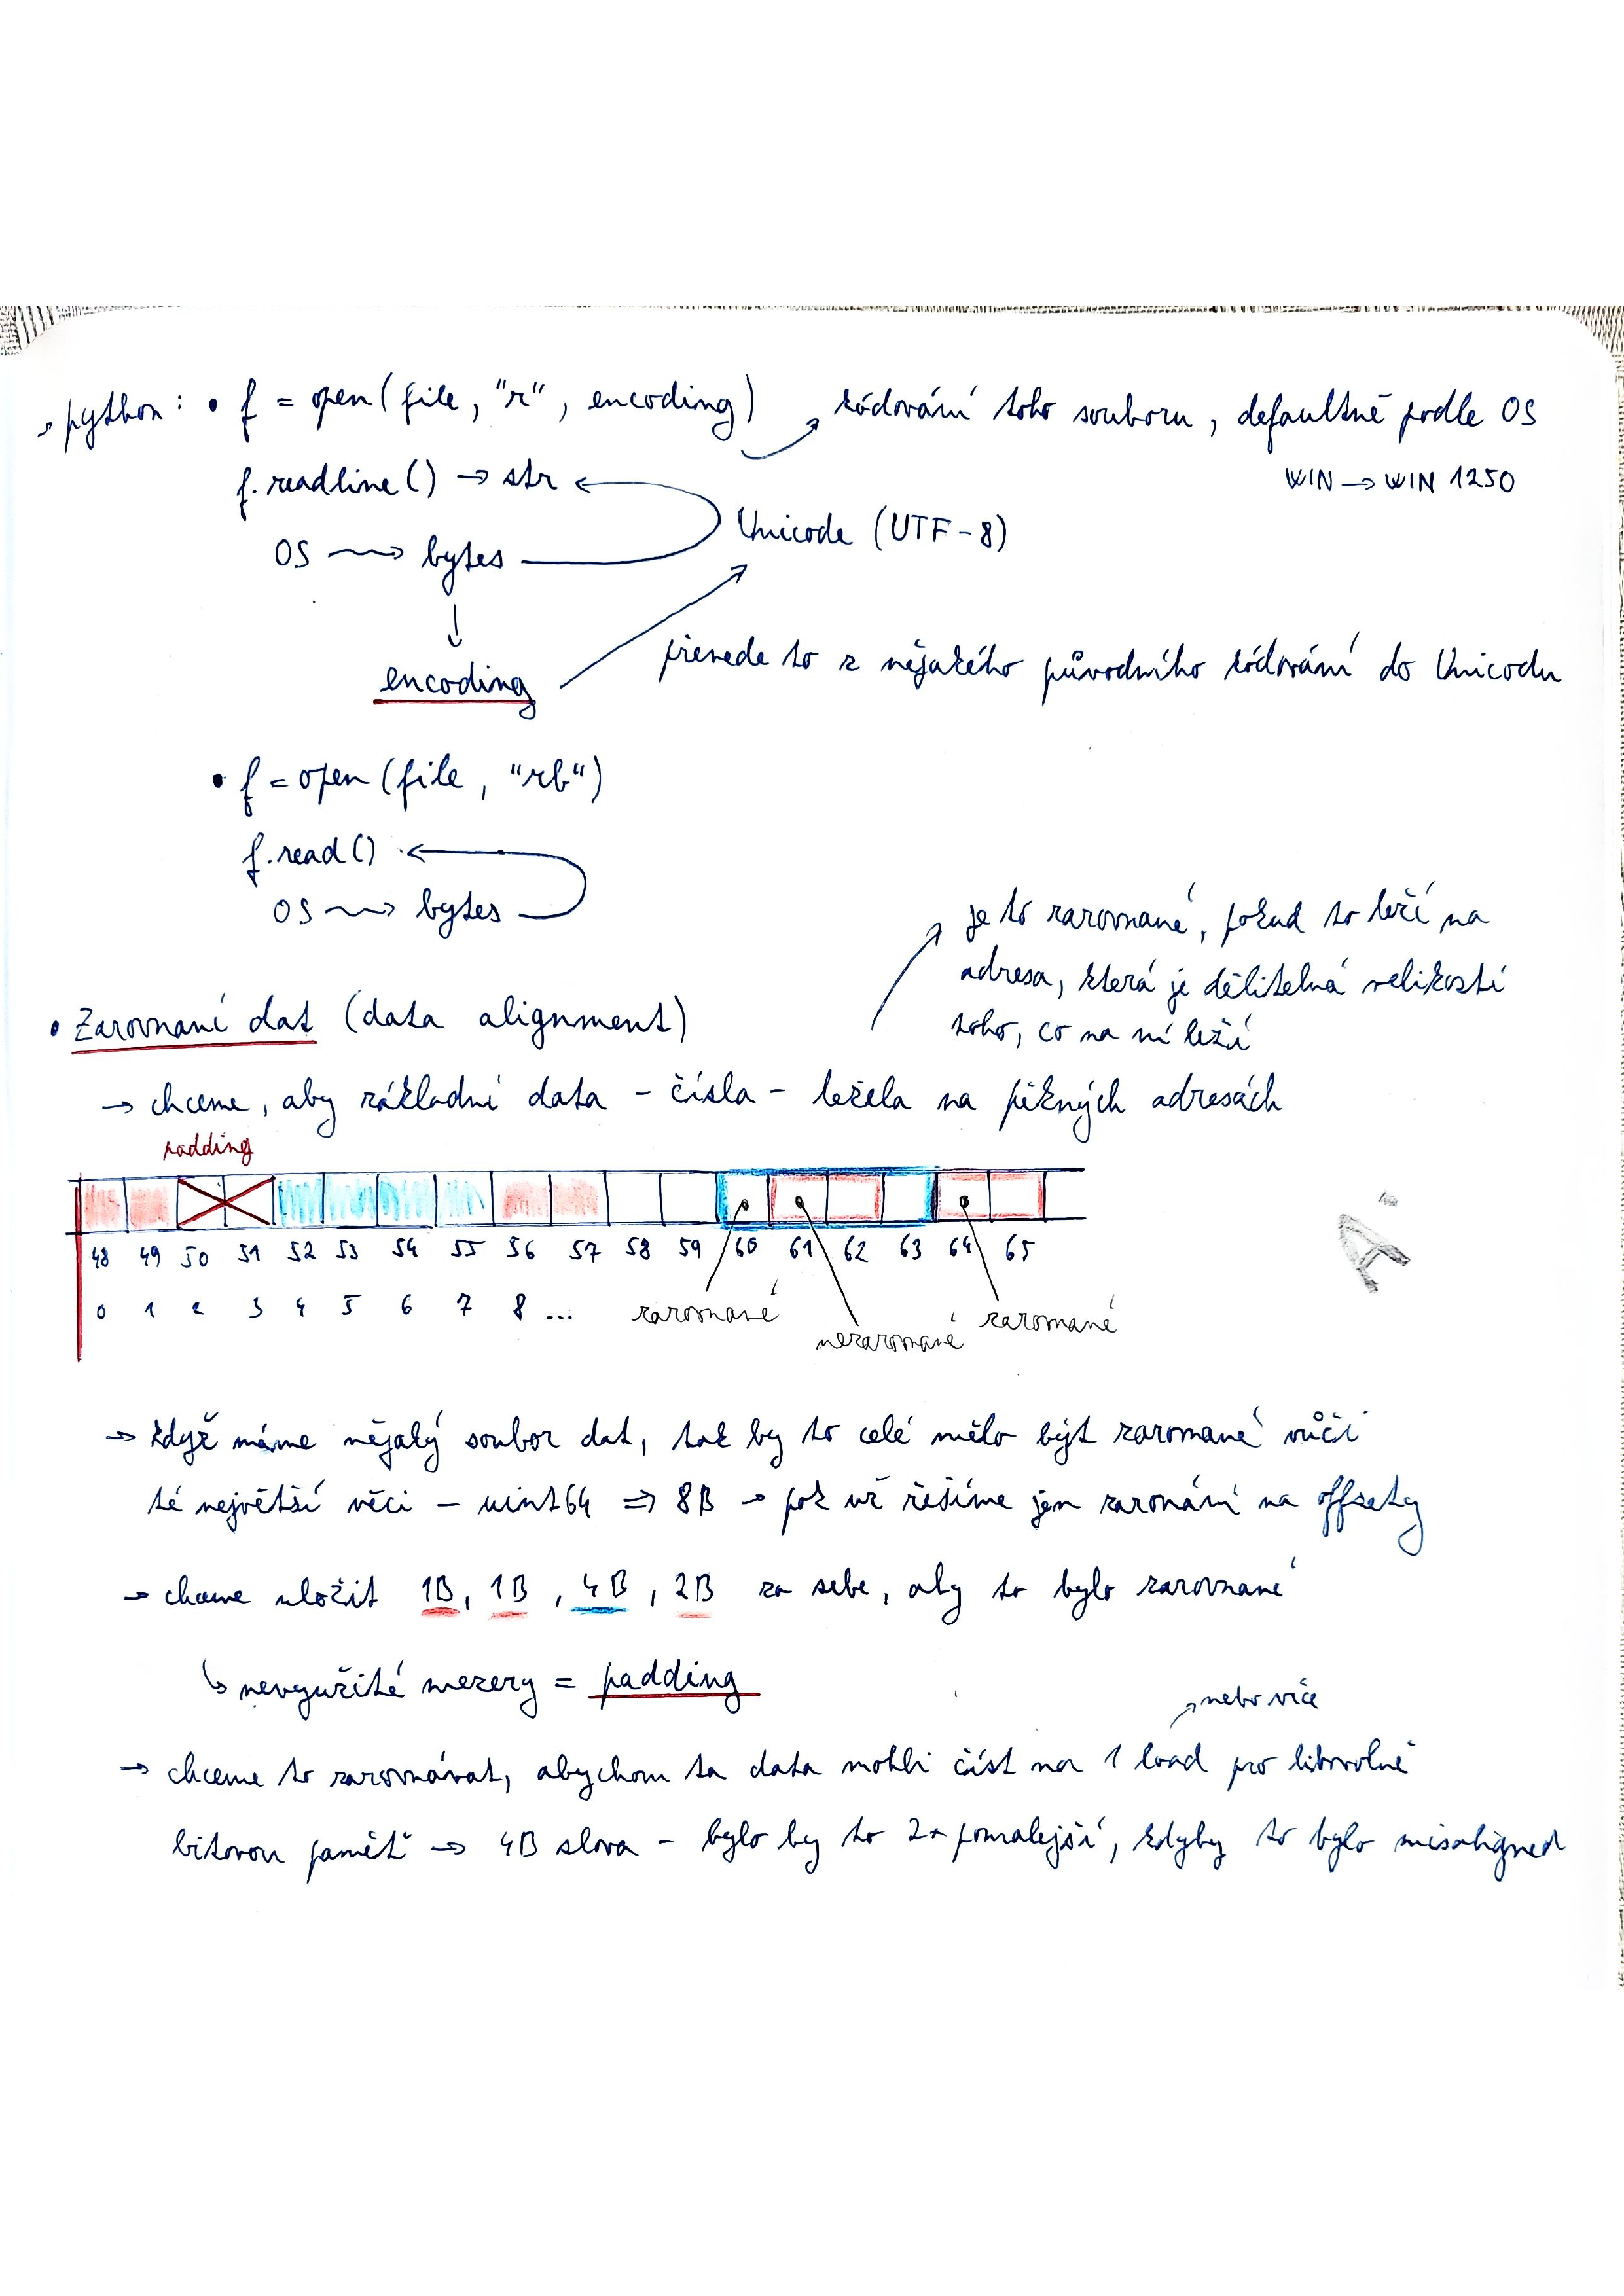 → python: • f = open(file, "r", encoding)
kódování toho souboru, defaultně podle OS
WIN → WIN 1250
f.readline() → str
Unicode (UTF-8)
OS ⟿ bytes
↓
encoding
převede to z nějakého původního kódování do Unicodu
• f = open(file, "rb")
f.read() ←
OS ⟿ bytes
je to zarovnané, pokud to leží na
adresa, která je dělitelná velikostí
toho, co na ní leží
• Zarovnaní dat (data alignment)
→ chceme, aby základní data - čísla - ležela na pěkných adresách
padding
48 49 50 51 52 53 54 55 56 57 58 59 60 61 62 63 64 65
0 1 2 3 4 5 6 7 8 ...
zarovnané
nezarovnané
zarovnané
→ když máme nějaký soubor dat, tak by to celé mělo být zarovnané vůči
té největší věci - uint64 ⇒ 8B → pak už řešíme jen zarovnání na offsety
→ chceme uložit 1B, 1B, 4B, 2B za sebe, aby to bylo zarovnané
↳ nevyužité mezery = padding
nebo více
→ chceme to zarovnávat, abychom ta data mohli číst na 1 load pro libovolně
bitovou paměť → 4B slova - bylo by to 2x pomalejší, kdyby to bylo misaligned